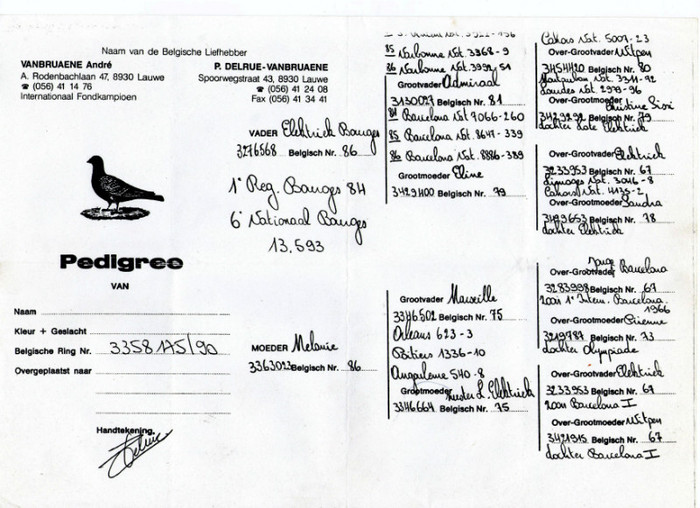 Naam van de Belgische Liefhebber
VANBRUAENE André
A. Rodenbachlaan 47, 8930 Lauwe
☎ (056) 41 14 76
Internationaal Fondkampioen
P. DELRUE-VANBRUAENE
Spoorwegstraat 43, 8930 Lauwe
☎ (056) 41 24 08
Fax (056) 41 34 41
Pedigree
VAN
Naam
Kleur + Geslacht
Belgische Ring Nr. 3358175/90
Overgeplaatst naar
Handtekening,
Delrue
VADER Elektriek Bourges
3276568 Belgisch Nr. 86
1° Reg. Bourges 84
6° Nationaal Bourges
13.593
MOEDER Melanie
3363023 Belgisch Nr. 86
85 Narbonne Nat. 3368-9
86 Narbonne Nat. 3991-51
Grootvader Admiraal
3130027 Belgisch Nr. 81
84 Barcelona Nat 7066-260
85 Barcelona Nat. 8647-339
86 Barcelona Nat. 8886-389
Grootmoeder Eline
3429400 Belgisch Nr. 79
Grootvader Marseille
3346502 Belgisch Nr. 75
Orleans 623-3
Poitiers 1336-10
Angouleme 540-8
Grootmoeder L. Elektriek
3346664 Belgisch Nr. 75
Cahors Nat. 5007-23
Over-Grootvader Witpen
3454420 Belgisch Nr. 80
Nat. 3311-92
Lourdes Nat. 2978-96
Over-Grootmoeder Christine Sissi
3429292 Belgisch Nr. 79
dochter Late Elektriek
Over-Grootvader Elektriek
3233953 Belgisch Nr. 67
Limoges Nat. 3046-8
Cahors Nat. 4135-21
Over-Grootmoeder Sandra
3493653 Belgisch Nr. 78
dochter Elektriek
Over-Grootvader Jonge Barcelona
3283998 Belgisch Nr. 67
zoon 1° Intern. Barcelona
1966
Over-Grootmoeder Etienne
3219787 Belgisch Nr. 73
dochter Olympiade
Over-Grootvader Elektriek
3233953 Belgisch Nr. 67
zoon Barcelona I
Over-Grootmoeder Witpen
3421315 Belgisch Nr. 67
dochter Barcelona I